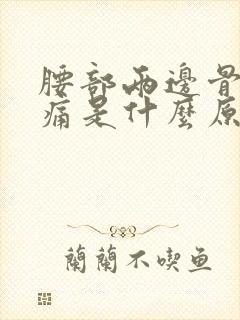 腰部兩邊骨
痛是什麼原
蘭蘭不喫魚